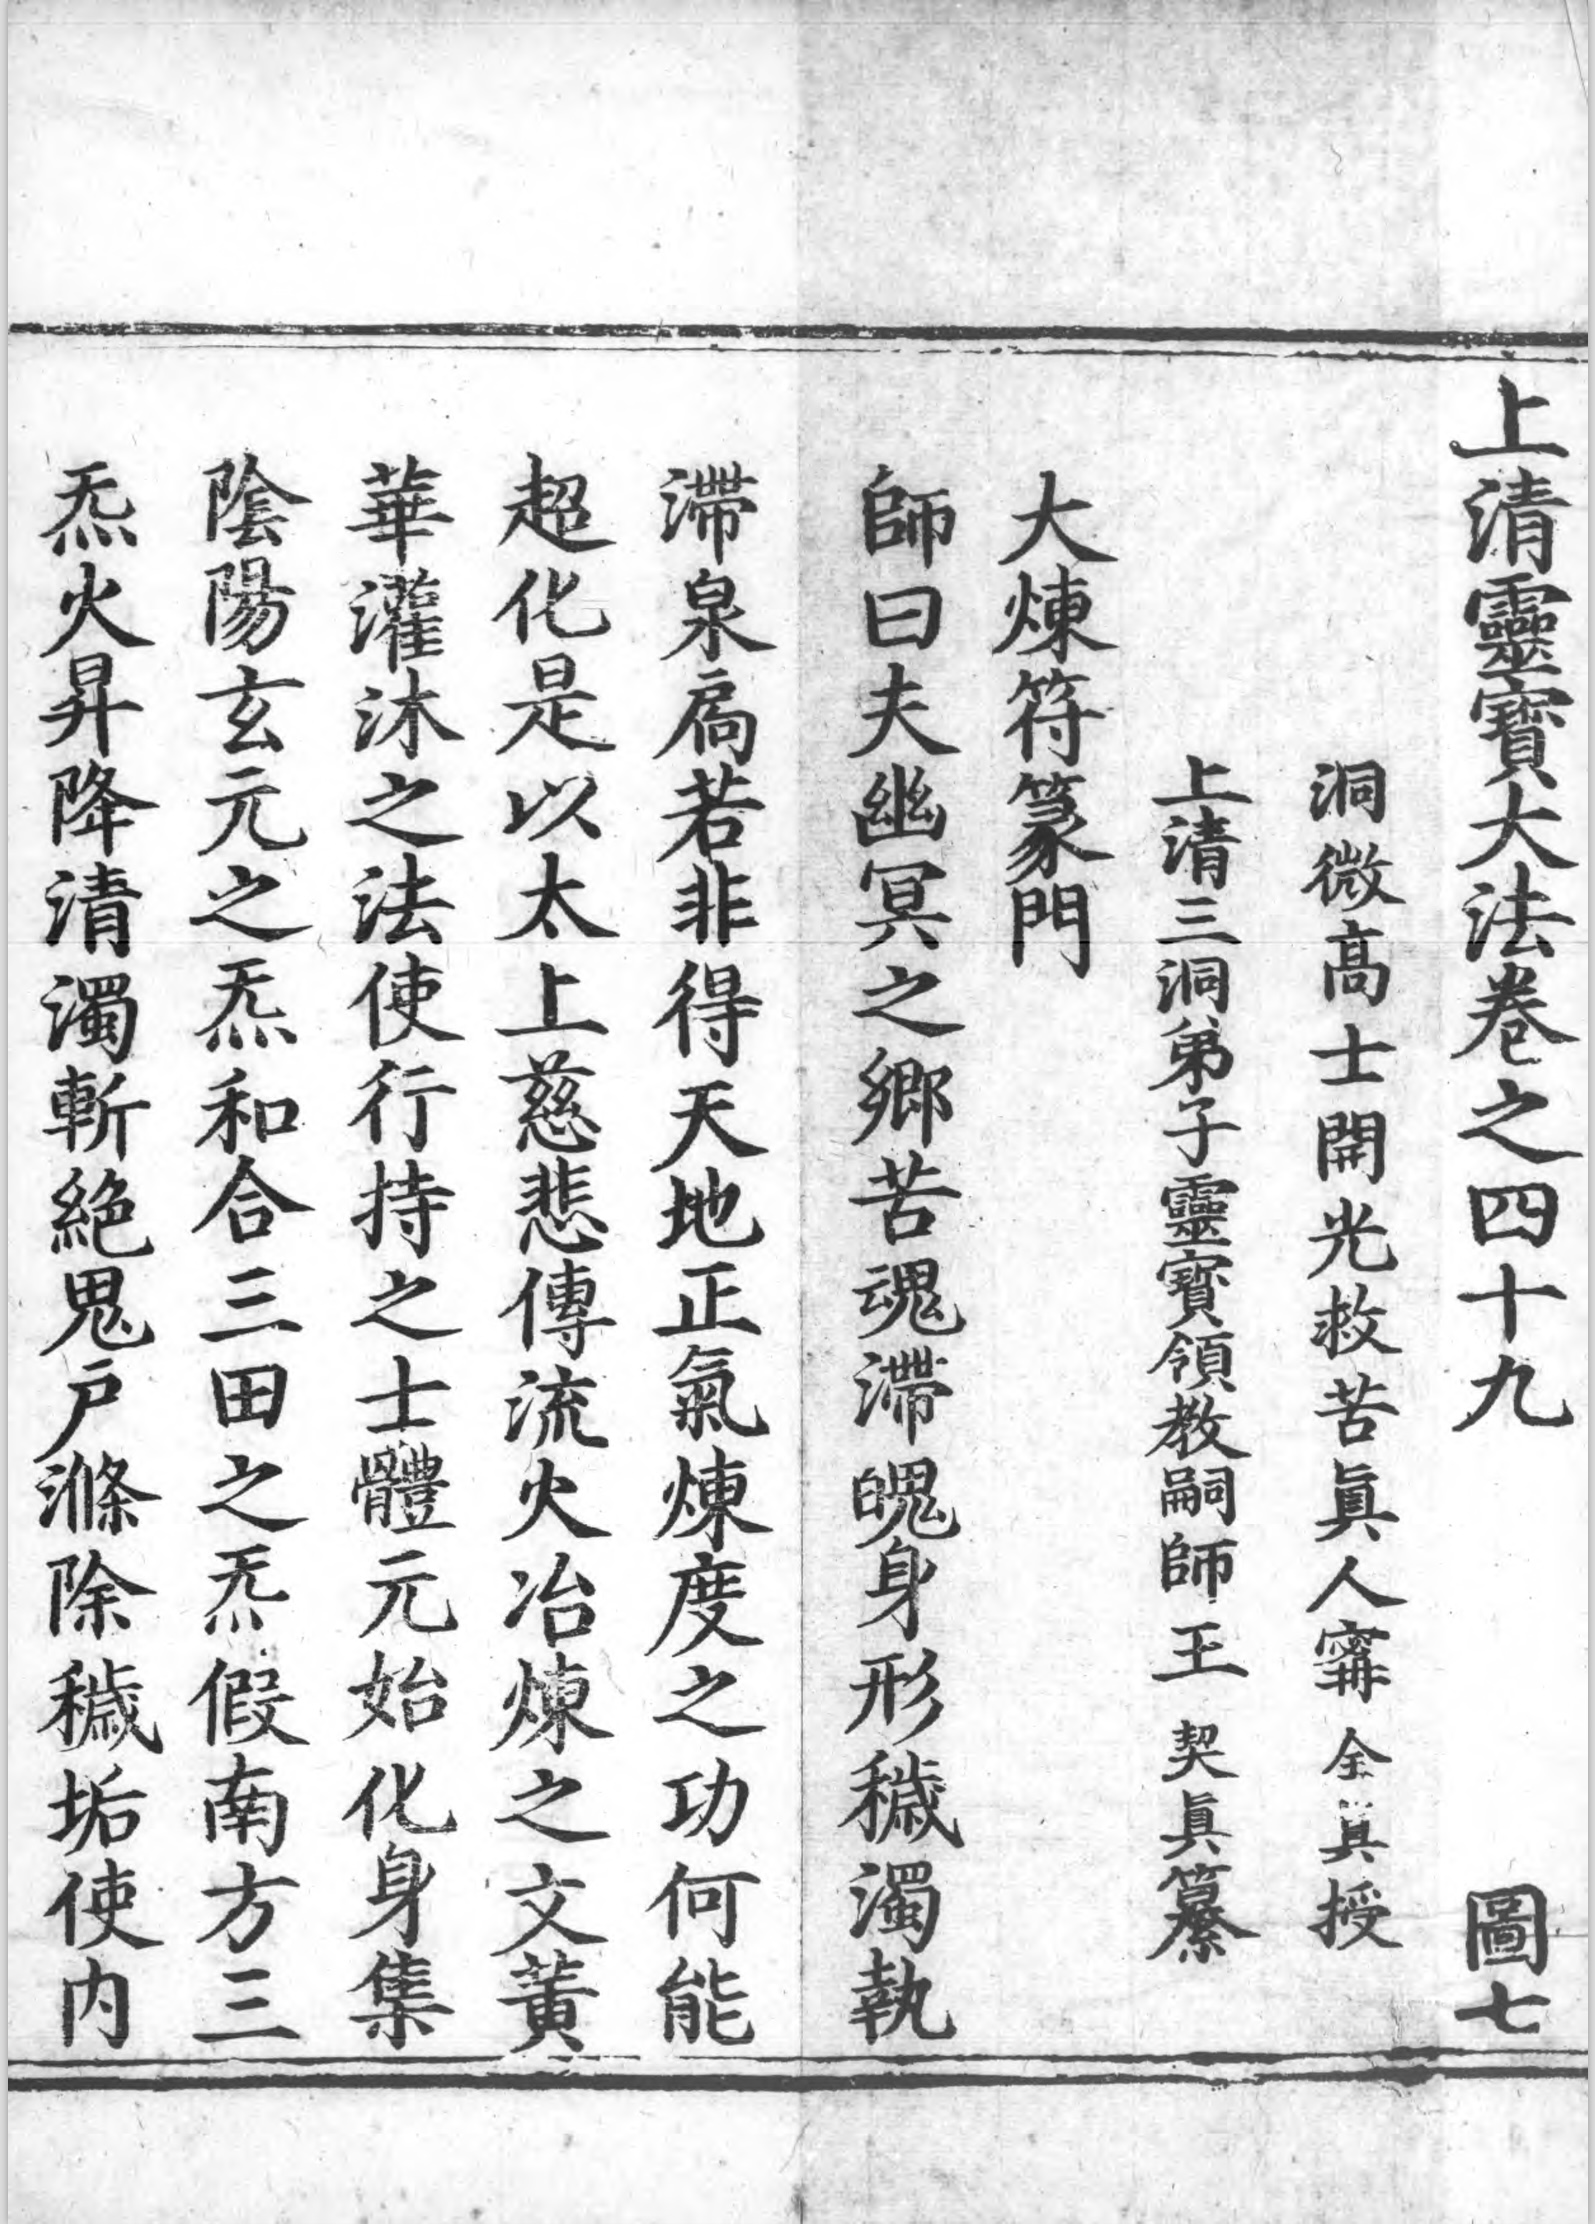 上清靈寶大法卷之四十九 圖七
洞微高士開光救苦眞人寗全真授
上清三洞弟子靈寶領教嗣師王契眞纂
大煉符篆門
師曰夫幽冥之鄉苦魂滯魄身形穢濁執
滯泉扃若非得天地正氣煉度之功何能
超化是以太上慈悲傳流火冶煉之文黃
華灌沐之法使行持之士體元始化身集
陰陽玄元之炁和合三田之炁假南方三
炁火昇降清濁斬絕鬼戶滌除穢垢使内